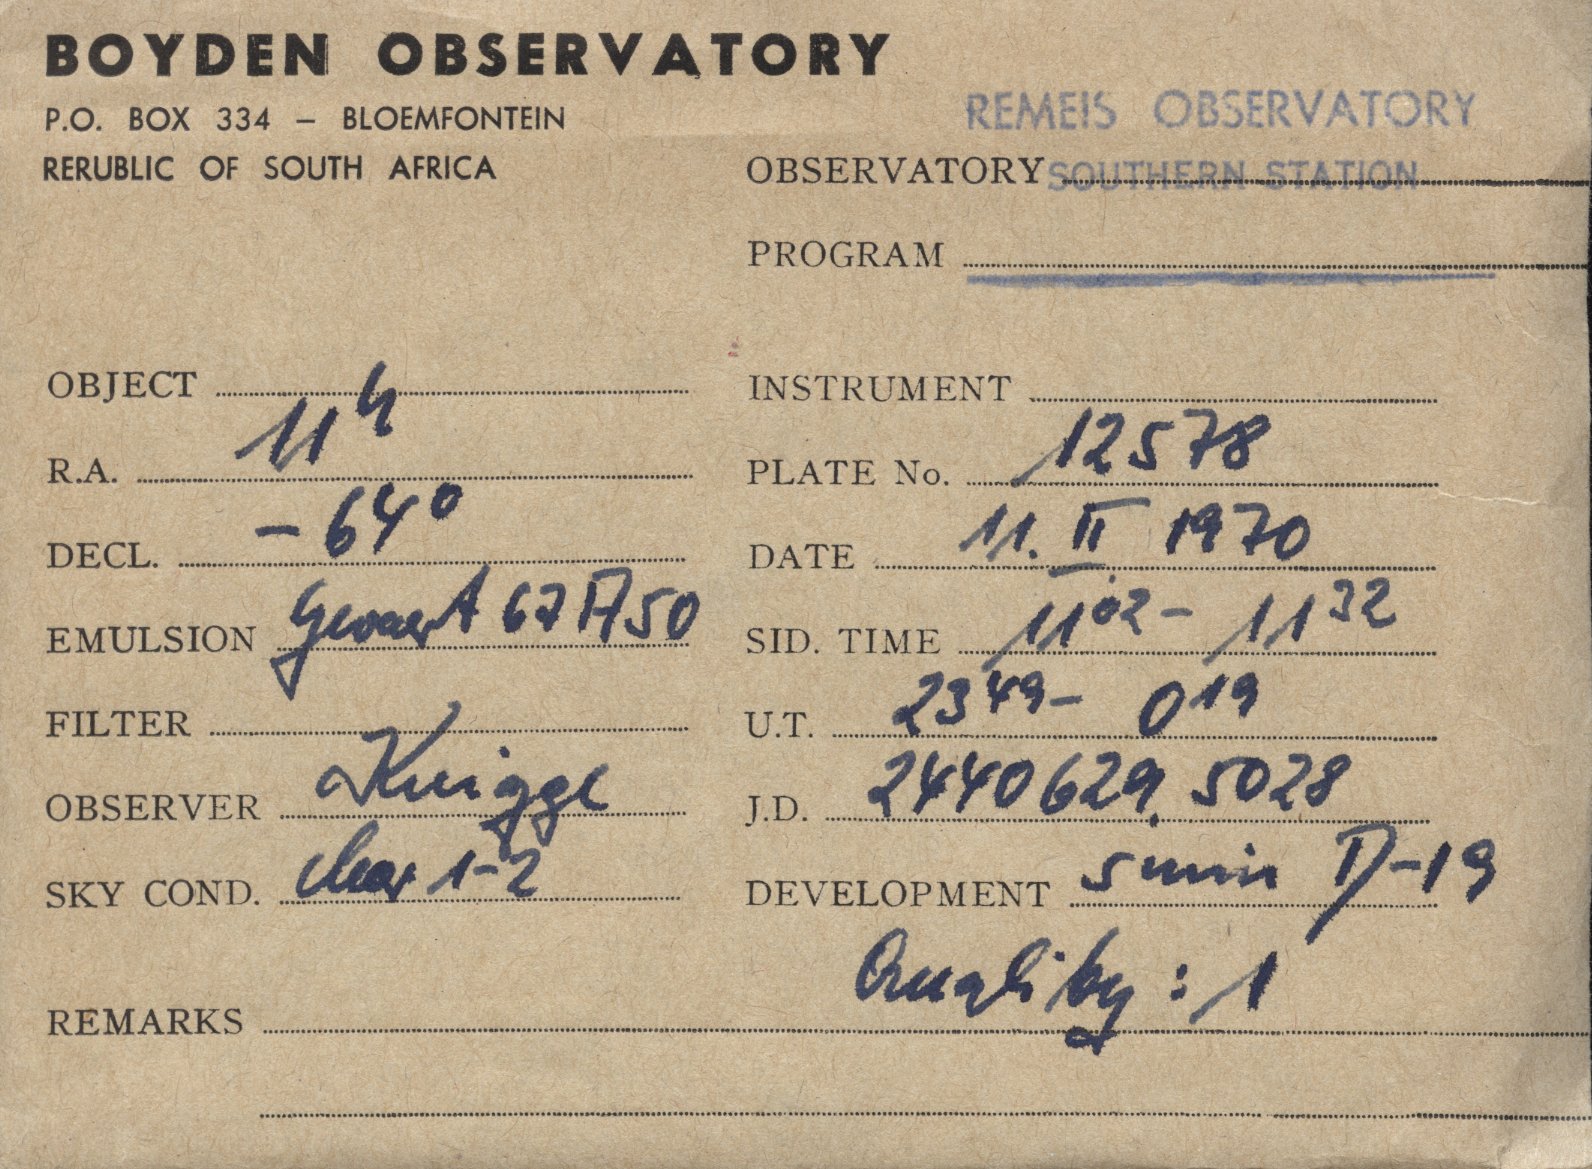 BOYDEN OBSERVATORY
P.O. BOX 334 – BLOEMFONTEIN
RERUBLIC OF SOUTH AFRICA
REMEIS OBSERVATORY
OBSERVATORY SOUTHERN STATION
PROGRAM
OBJECT
R.A. 11h
DECL. -64°
EMULSION Gevaert 67A50
FILTER
OBSERVER Knigge
SKY COND. clear 1-2
INSTRUMENT
PLATE No. 12578
DATE 11. II 1970
SID. TIME 11 02 - 11 32
U.T. 23 49 - 0 19
J.D. 2440629.5028
DEVELOPMENT 5 min D-19
Quality: 1
REMARKS